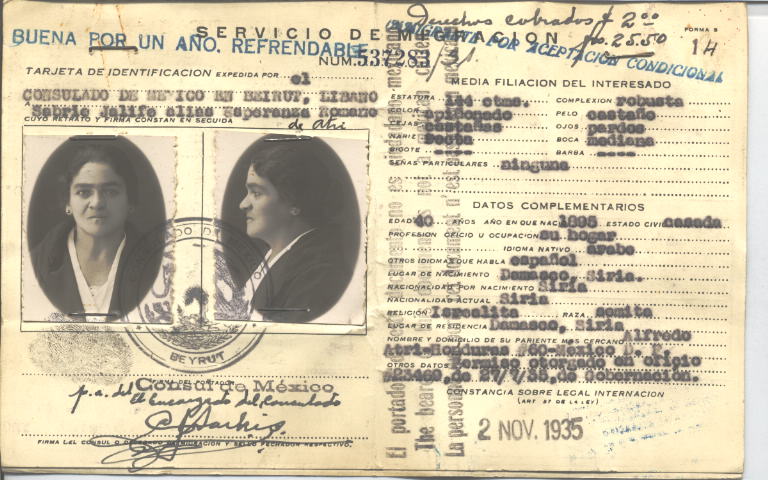 SERVICIO DE MIGRACION
BUENA POR UN AÑO. REFRENDABLE
NUM. 537283
TARJETA DE IDENTIFICACION EXPEDIDA POR el
CONSULADO DE MEXICO EN BEIRUT, LIBANO
Sabrie Jalife alias Esperanza Romano
de Atri
CUYO RETRATO Y FIRMA CONSTAN EN SEGUIDA
BEYRUT
p.a. del Consul de México
El Encargado del Consulado
FIRMA DEL CONSUL
Derechos cobrados $ 2.00
25.50
FORMA 5
14
INMIGRANTE POR ACEPTACION CONDICIONAL
MEDIA FILIACION DEL INTERESADO
ESTATURA 144 ctms. COMPLEXION robusta
COLOR apiñonado PELO castaño
CEJAS castañas OJOS pardos
NARIZ recta BOCA mediana
BIGOTE ---- BARBA ----
SEÑAS PARTICULARES ninguna
DATOS COMPLEMENTARIOS
EDAD 40 AÑOS AÑO EN QUE NACIO 1895 ESTADO CIVIL casada
PROFESION OFICIO U OCUPACION su hogar
IDIOMA NATIVO arabe
OTROS IDIOMAS QUE HABLA español
LUGAR DE NACIMIENTO Damasco, Siria.
NACIONALIDAD POR NACIMIENTO Siria
NACIONALIDAD ACTUAL Siria
RELIGION Israelita RAZA semita
LUGAR DE RESIDENCIA Damasco, Siria
NOMBRE Y DOMICILIO DE SU PARIENTE MAS CERCANO Alfredo
Atri-Honduras
OTROS DATOS Permiso otorgado en oficio
de 27/7/35, de Gobernación.
CONSTANCIA SOBRE LEGAL INTERNACION
(ART 57 DE LA LEY)
2 NOV. 1935
El portador
The bearer
La personne